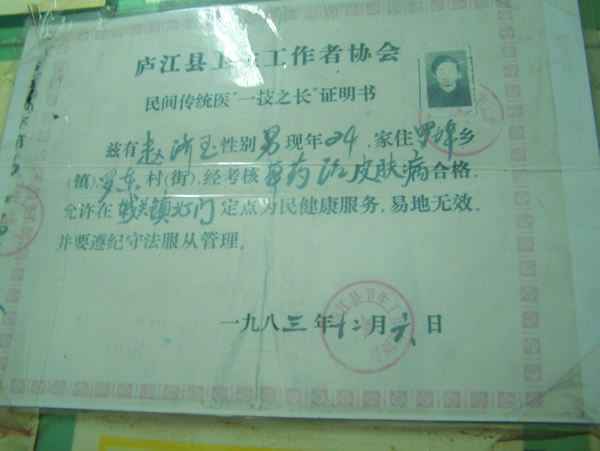 庐江县卫生工作者协会
民间传统医“一技之长”证明书
兹有赵济玉性别男现年24，家住罗埠乡
(镇)罗东村(街)，经考核草药治皮肤病合格，
允许在城关镇北门定点为民健康服务，易地无效。
并要遵纪守法服从管理。
一九八三年十二月六日
庐江县卫生工作者协会